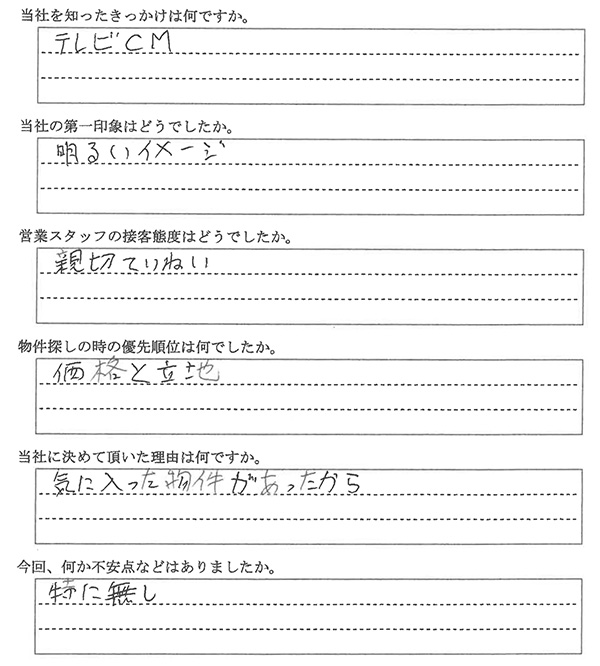 当社を知ったきっかけは何ですか。
テレビCM
当社の第一印象はどうでしたか。
明るいイメージ
営業スタッフの接客態度はどうでしたか。
親切ていねい
物件探しの時の優先順位は何でしたか。
価格と立地
当社に決めて頂いた理由は何ですか。
気に入った物件があったから
今回、何か不安点などはありましたか。
特に無し